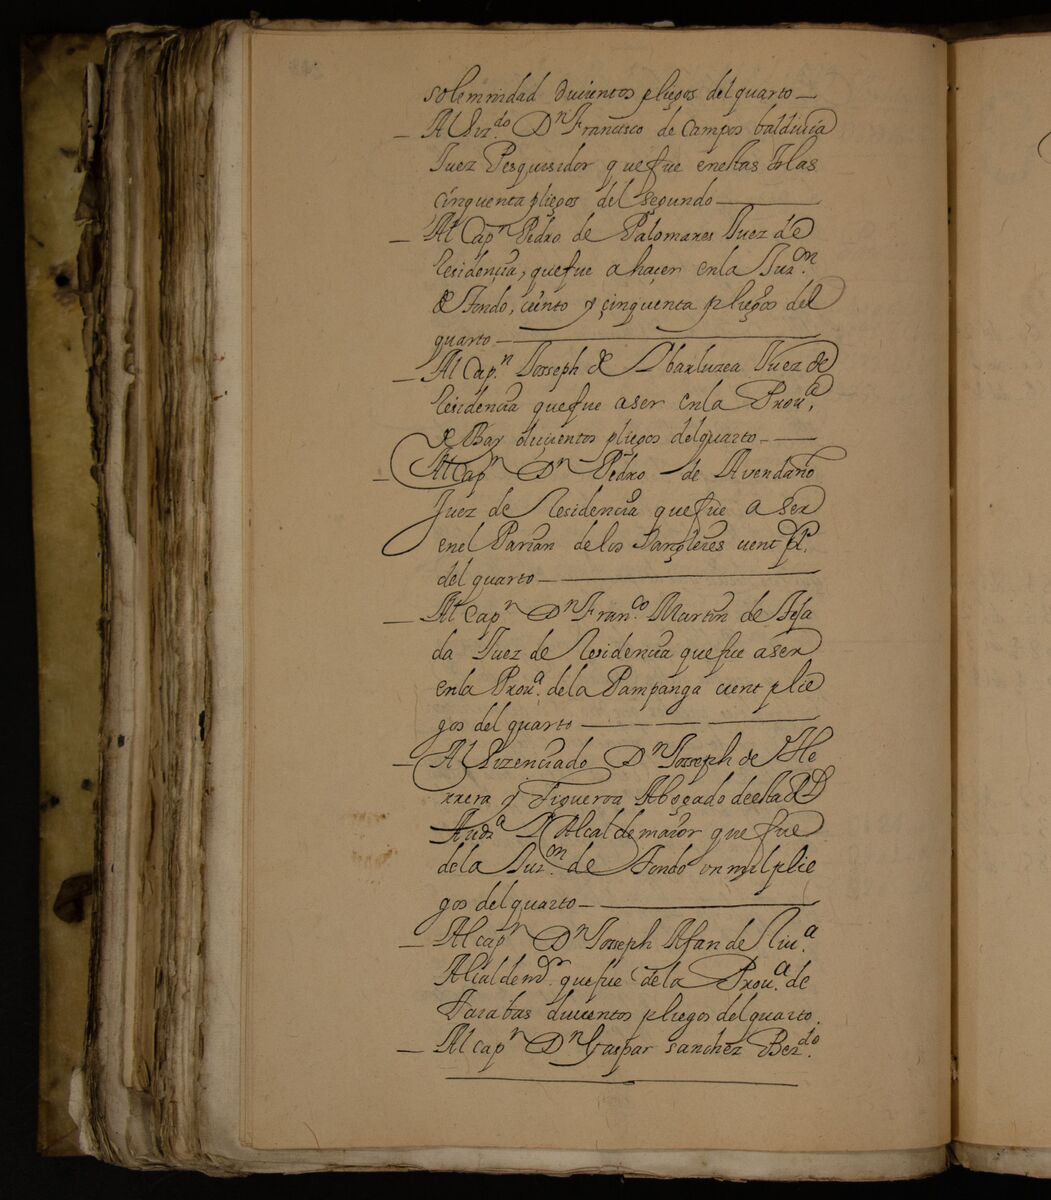 solemnidad duuientos pliegos del quarto —
— Al Liz.do Dn Francisco de Campos baldiuia
Juez Pesquisidor que fue en estas Islas
cinquenta pliegos del segundo —
— Al Capn Pedro de Palomares Juez de
residencia, que fue a haçer en la Jur.on
de Tondo, ciento y çinquenta pliegos del
quarto —
— Al Cap.n Joseph de Juez de
residencia que fue a ser en la Prou.a
de Bay duuientos pliegos del quarto —
— Al Capn Dn Pedro de Avendaño
Juez de Residencia que fue a ser
en el Parian de los Sangleies cient pl.
del quarto —
— Al Capn Dn Fran.co Martin de Teja
da Juez de Residencia que fue a ser
en la Prou.a de la Pampanga cient plie
gos del quarto —
— Al Lizenciado Dn Joseph de He
rrera y Figueroa Abogado de esta Rl
Audi.a Alcalde maior que fue
de la Jur.on de Tondo vn mil plie
gos del quarto —
— Al capn Dn Joseph Afan de Riu.a
Alcalde mr. que fue de la Prou.a de
duuientos pliegos del quarto.
— Al capn Dn Gaspar sanchez Bez.do